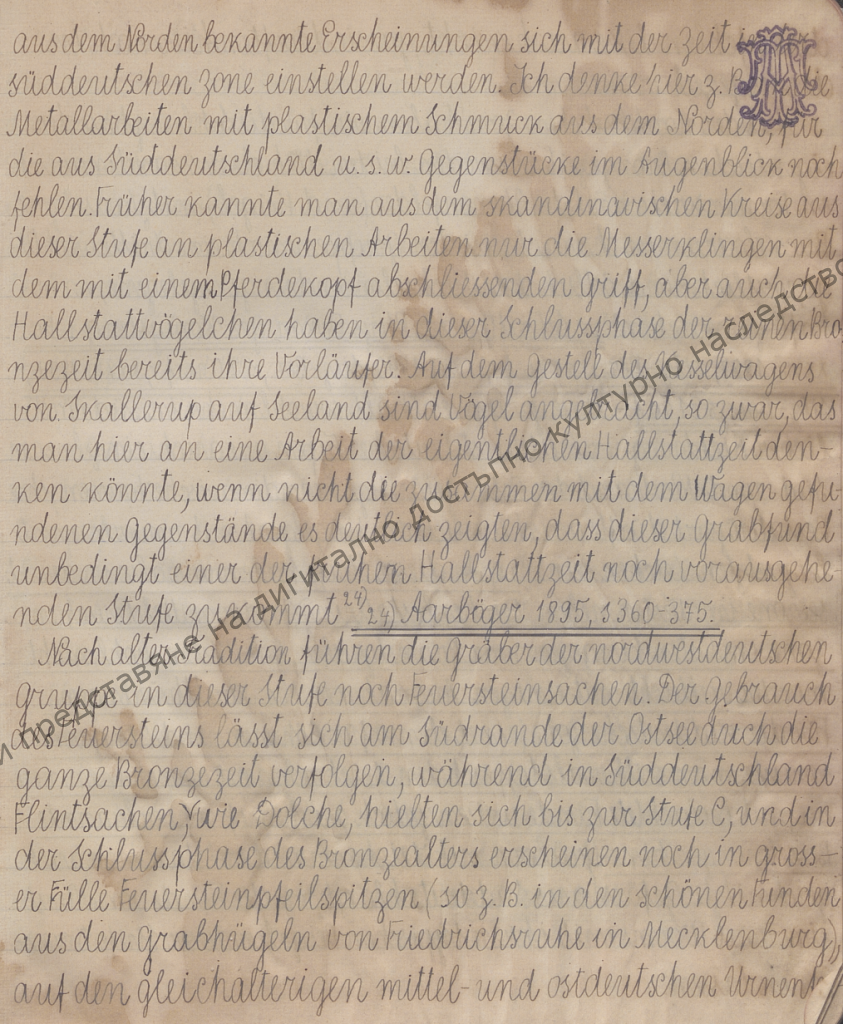 aus dem Norden bekannte Erscheinungen sich mit der Zeit
süddeutschen Zone einstellen werden. Ich denke hier z. B. die
Metallarbeiten mit plastischem Schmuck aus dem Norden, für
die aus Süddeutschland u. s. w. Gegenstücke im Augenblick noch
fehlen. Früher kannte man aus dem skandinavischen Kreise aus
dieser Stufe an plastischen Arbeiten nur die Messerklingen mit
dem mit einem Pferdekopf abschliessenden Griff, aber auch die
Hallstattvögelchen haben in dieser Schlussphase der reinen Bro-
nzezeit bereits ihre Vorläufer. Auf dem Gestell des Kesselwagens
von Skallerup auf Seeland sind Vögel angebracht, so zwar, das
man hier an eine Arbeit der eigentlichen Hallstattzeit den-
ken könnte, wenn nicht die zusammen mit dem Wagen gefu-
ndenen Gegenstände es deutlich zeigten, dass dieser Grabfund
unbedingt einer der frühen Hallstattzeit noch vorausgehe-
nden Stufe zukommt 24) 24) Aarböger 1895, S 360-375.
Nach alter Tradition führen die Gräber der nordwestdeutschen
Gruppe in dieser Stufe noch Feuersteinsachen. Der Gebrauch
des Feuersteins lässt sich am Südrande der Ostsee durch die
ganze Bronzezeit verfolgen, während in Süddeutschland
Flintsachen, wie Dolche, hielten sich bis zur Stufe C, und in
der Schlussphase des Bronzealters erscheinen noch in gross-
er Fülle Feuersteinpfeilspitzen (so z. B. in den schönen Funden
aus den Grabhügeln von Friedrichsruhe in Mecklenburg),
auf den gleichalterigen mittel- und ostdeutschen
и представяне на дигитално достъпно културно наследство